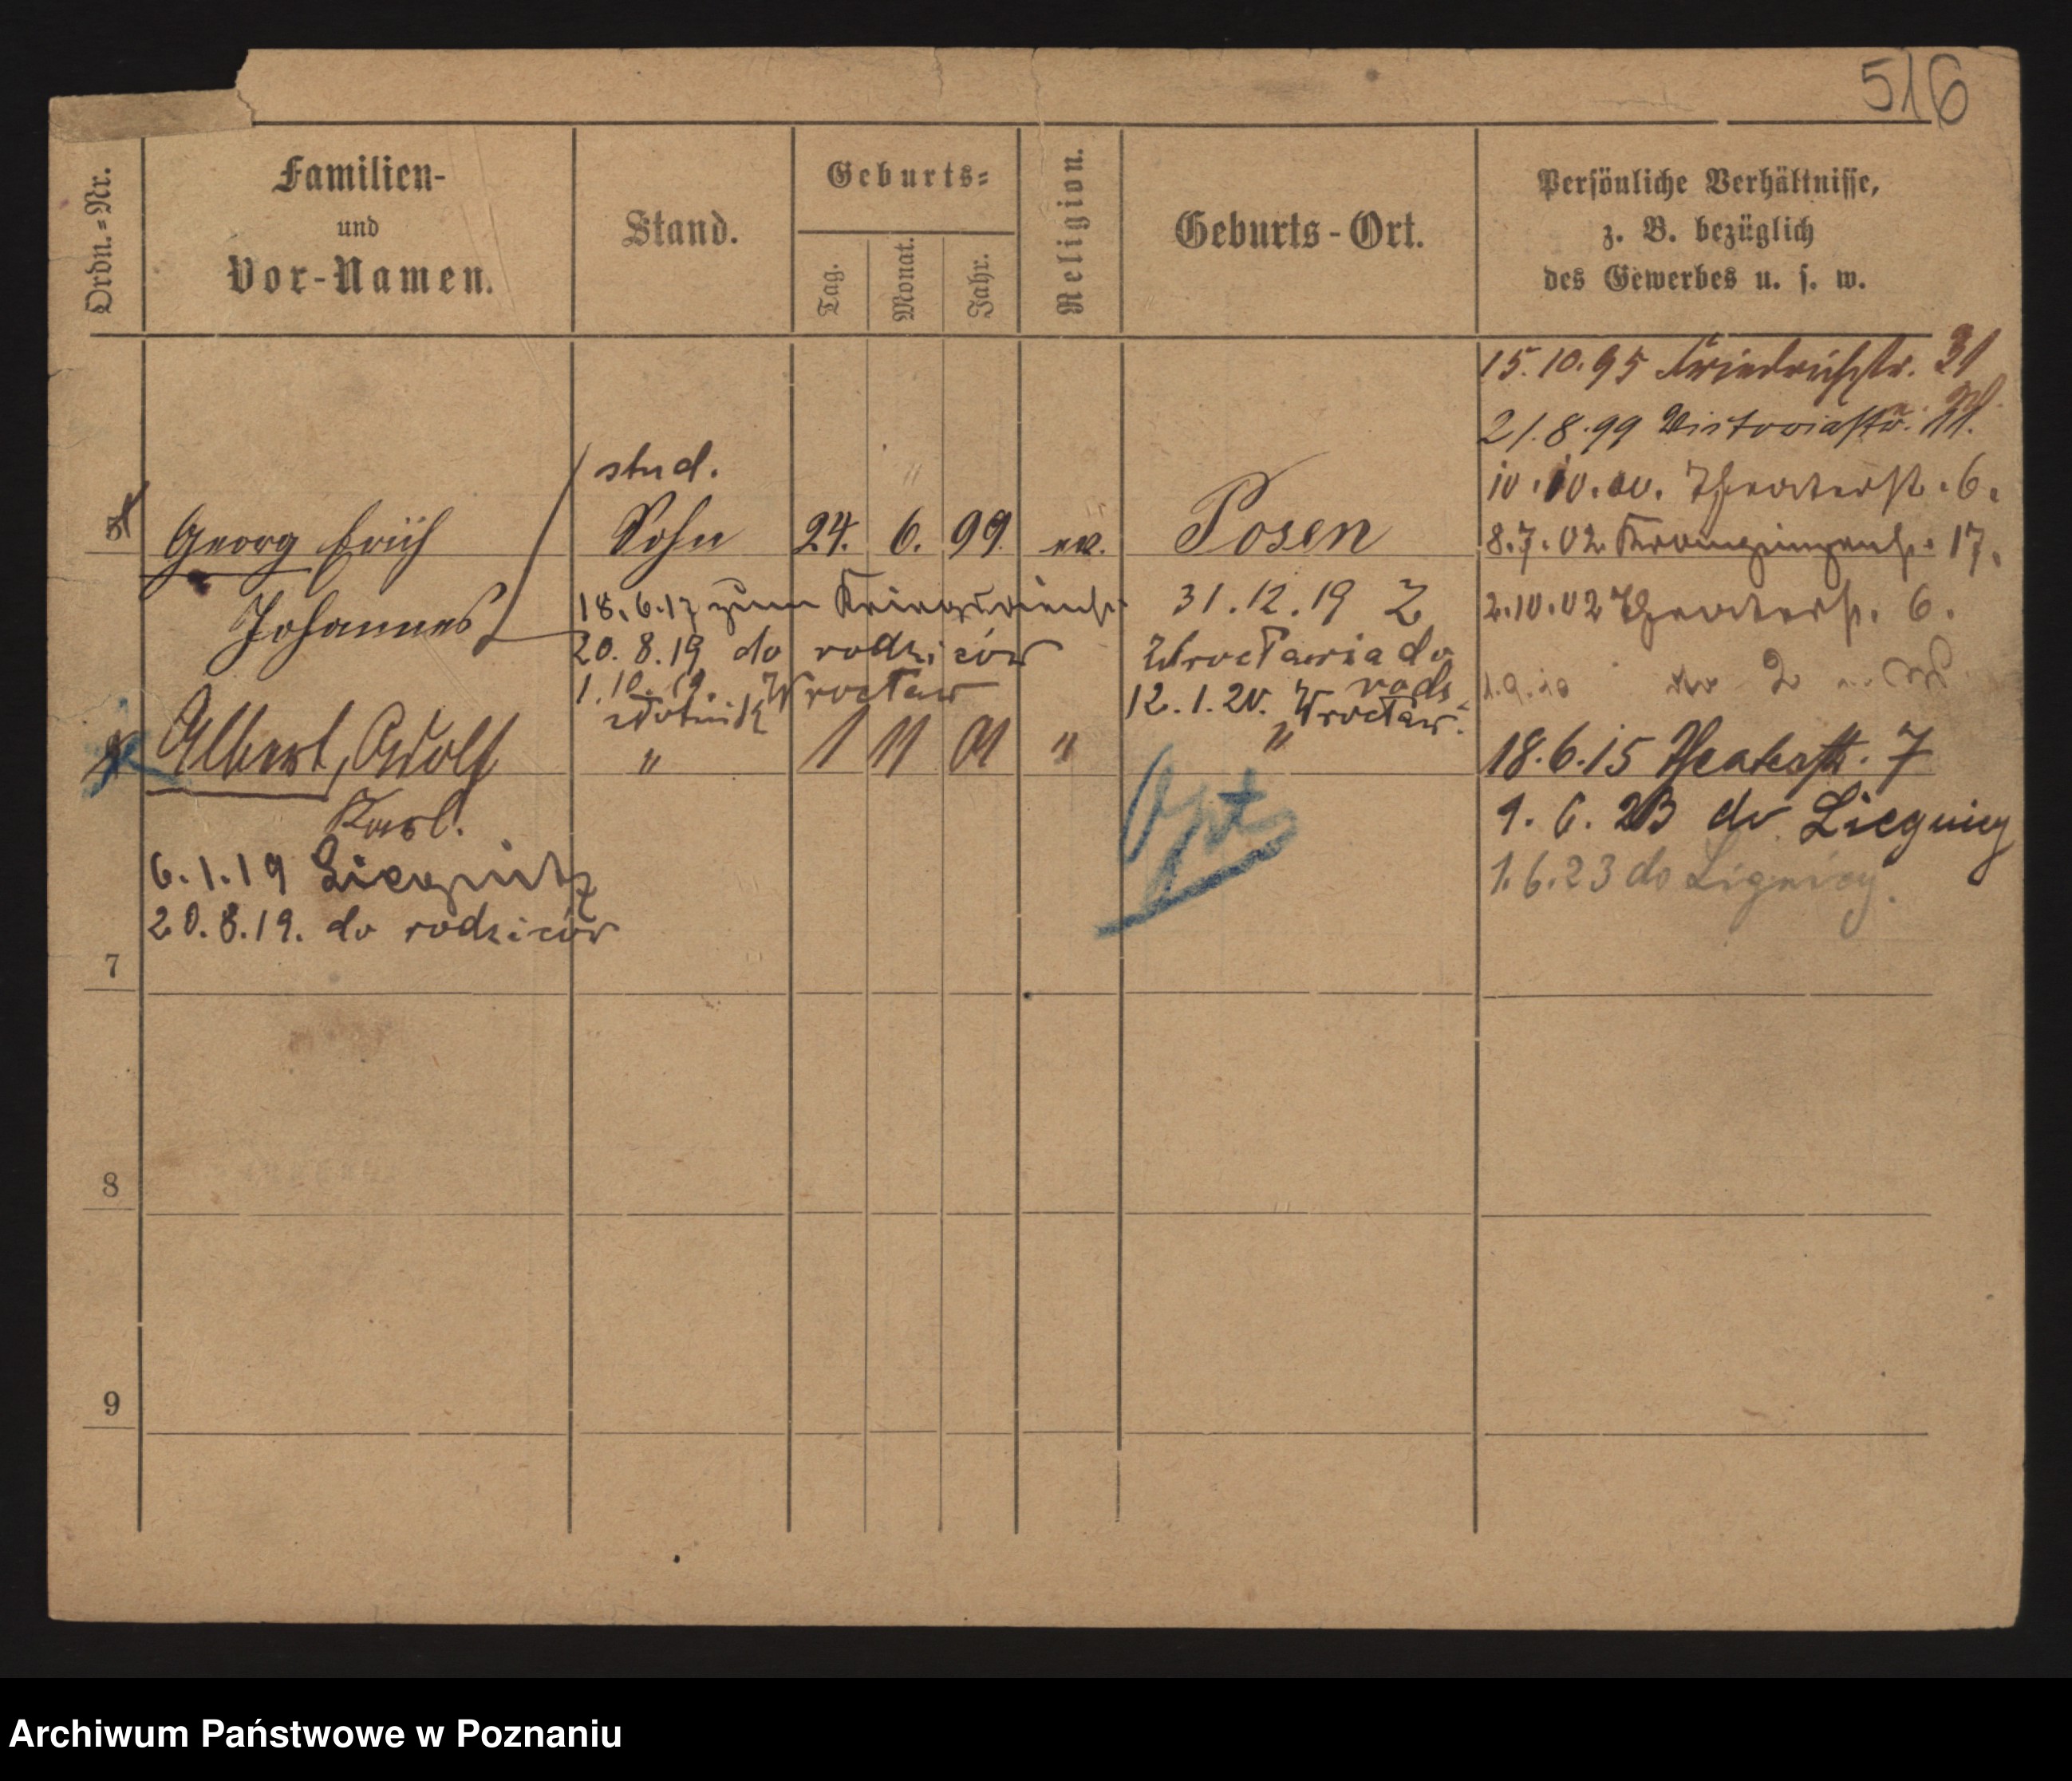 516
Ordn.=Nr.
Familien-
und
Vor-Namen.
Stand.
Geburts=
Tag.
Monat.
Jahr.
Religion.
Geburts-Ort.
Persönliche Verhältnisse,
z. B. bezüglich
des Gewerbes u. s. w.
15.10.95 Friedrichstr. 31
21.8.99 Victoriastr. 11.
stud.
10.10.00. Theaterstr. 6.
Georg Erich Sohn 24. 6. 99. ev. Posen
8.7.02 Kronprinzenstr. 17.
Johannes
18.6.17 zum Kriegsdienst
31.12.19 Z
2.10.02 Theaterstr. 6.
20.8.19 do rodziców
Wrocławia do
rodz.
1.10.19. Wrocław
12.1.20. Wrocław.
1.9.10 2
Albert, Adolf " 1 11 01 " "
18.6.15 Theaterstr. 7
Karl.
Opt
1.6.23 do Liegnicy
6.1.19 Liegnitz
1.6.23 do Lignicy.
20.8.19. do rodziców
7
8
9
Archiwum Państwowe w Poznaniu